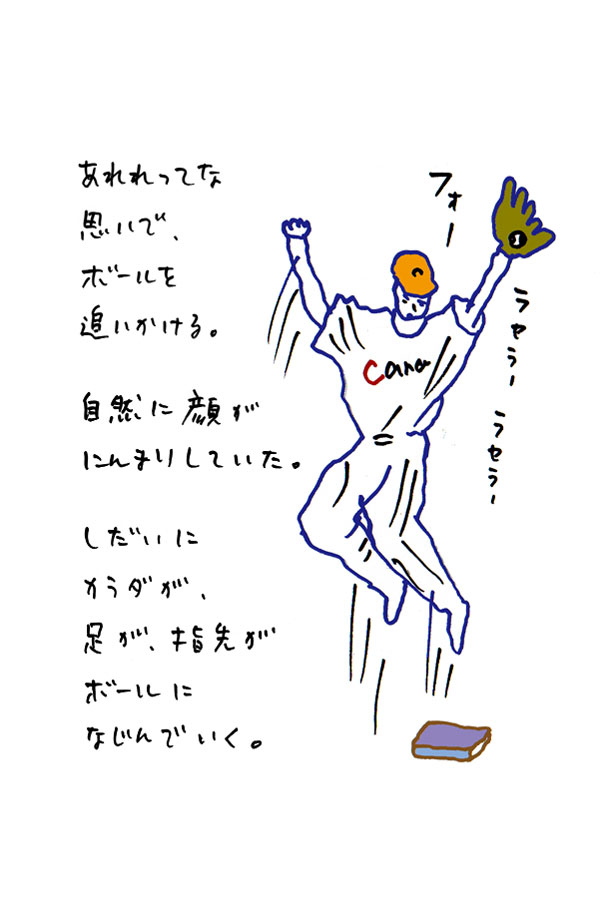 あれれってな
思いで、
ボールを
追いかける。
自然に顔が
にんまりしていた。
しだいに
カラダが、
足が、指先が
ボールに
なじんでいく。
フォー
ラセラー ラセラー
Cana